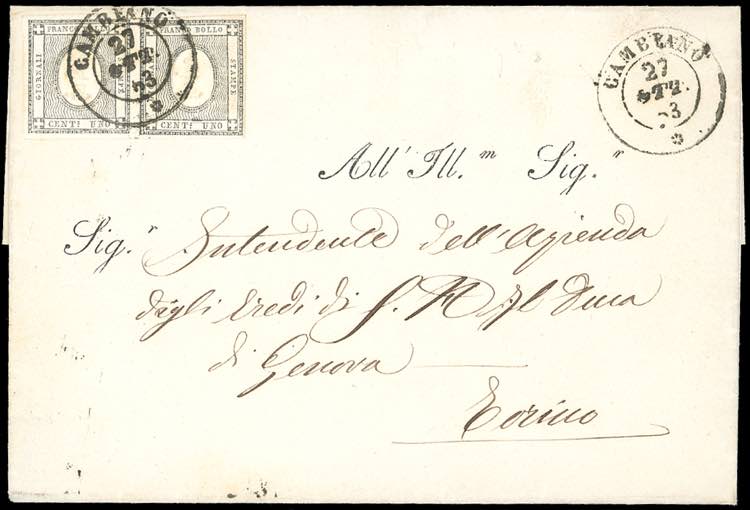 FRANCO BOLLO
GIORNALI
STAMPE
CENT: UNO
FRANCO BOLLO
STAMPE
CENT: UNO
CAMBIANO
27
OTT.
73
CAMBIANO
27
OTT.
73
All' Ill.m Sig.r
Sig.r Intendente dell'Azienda
degli Eredi di S. A. R. Il Duca
di Genova
Torino